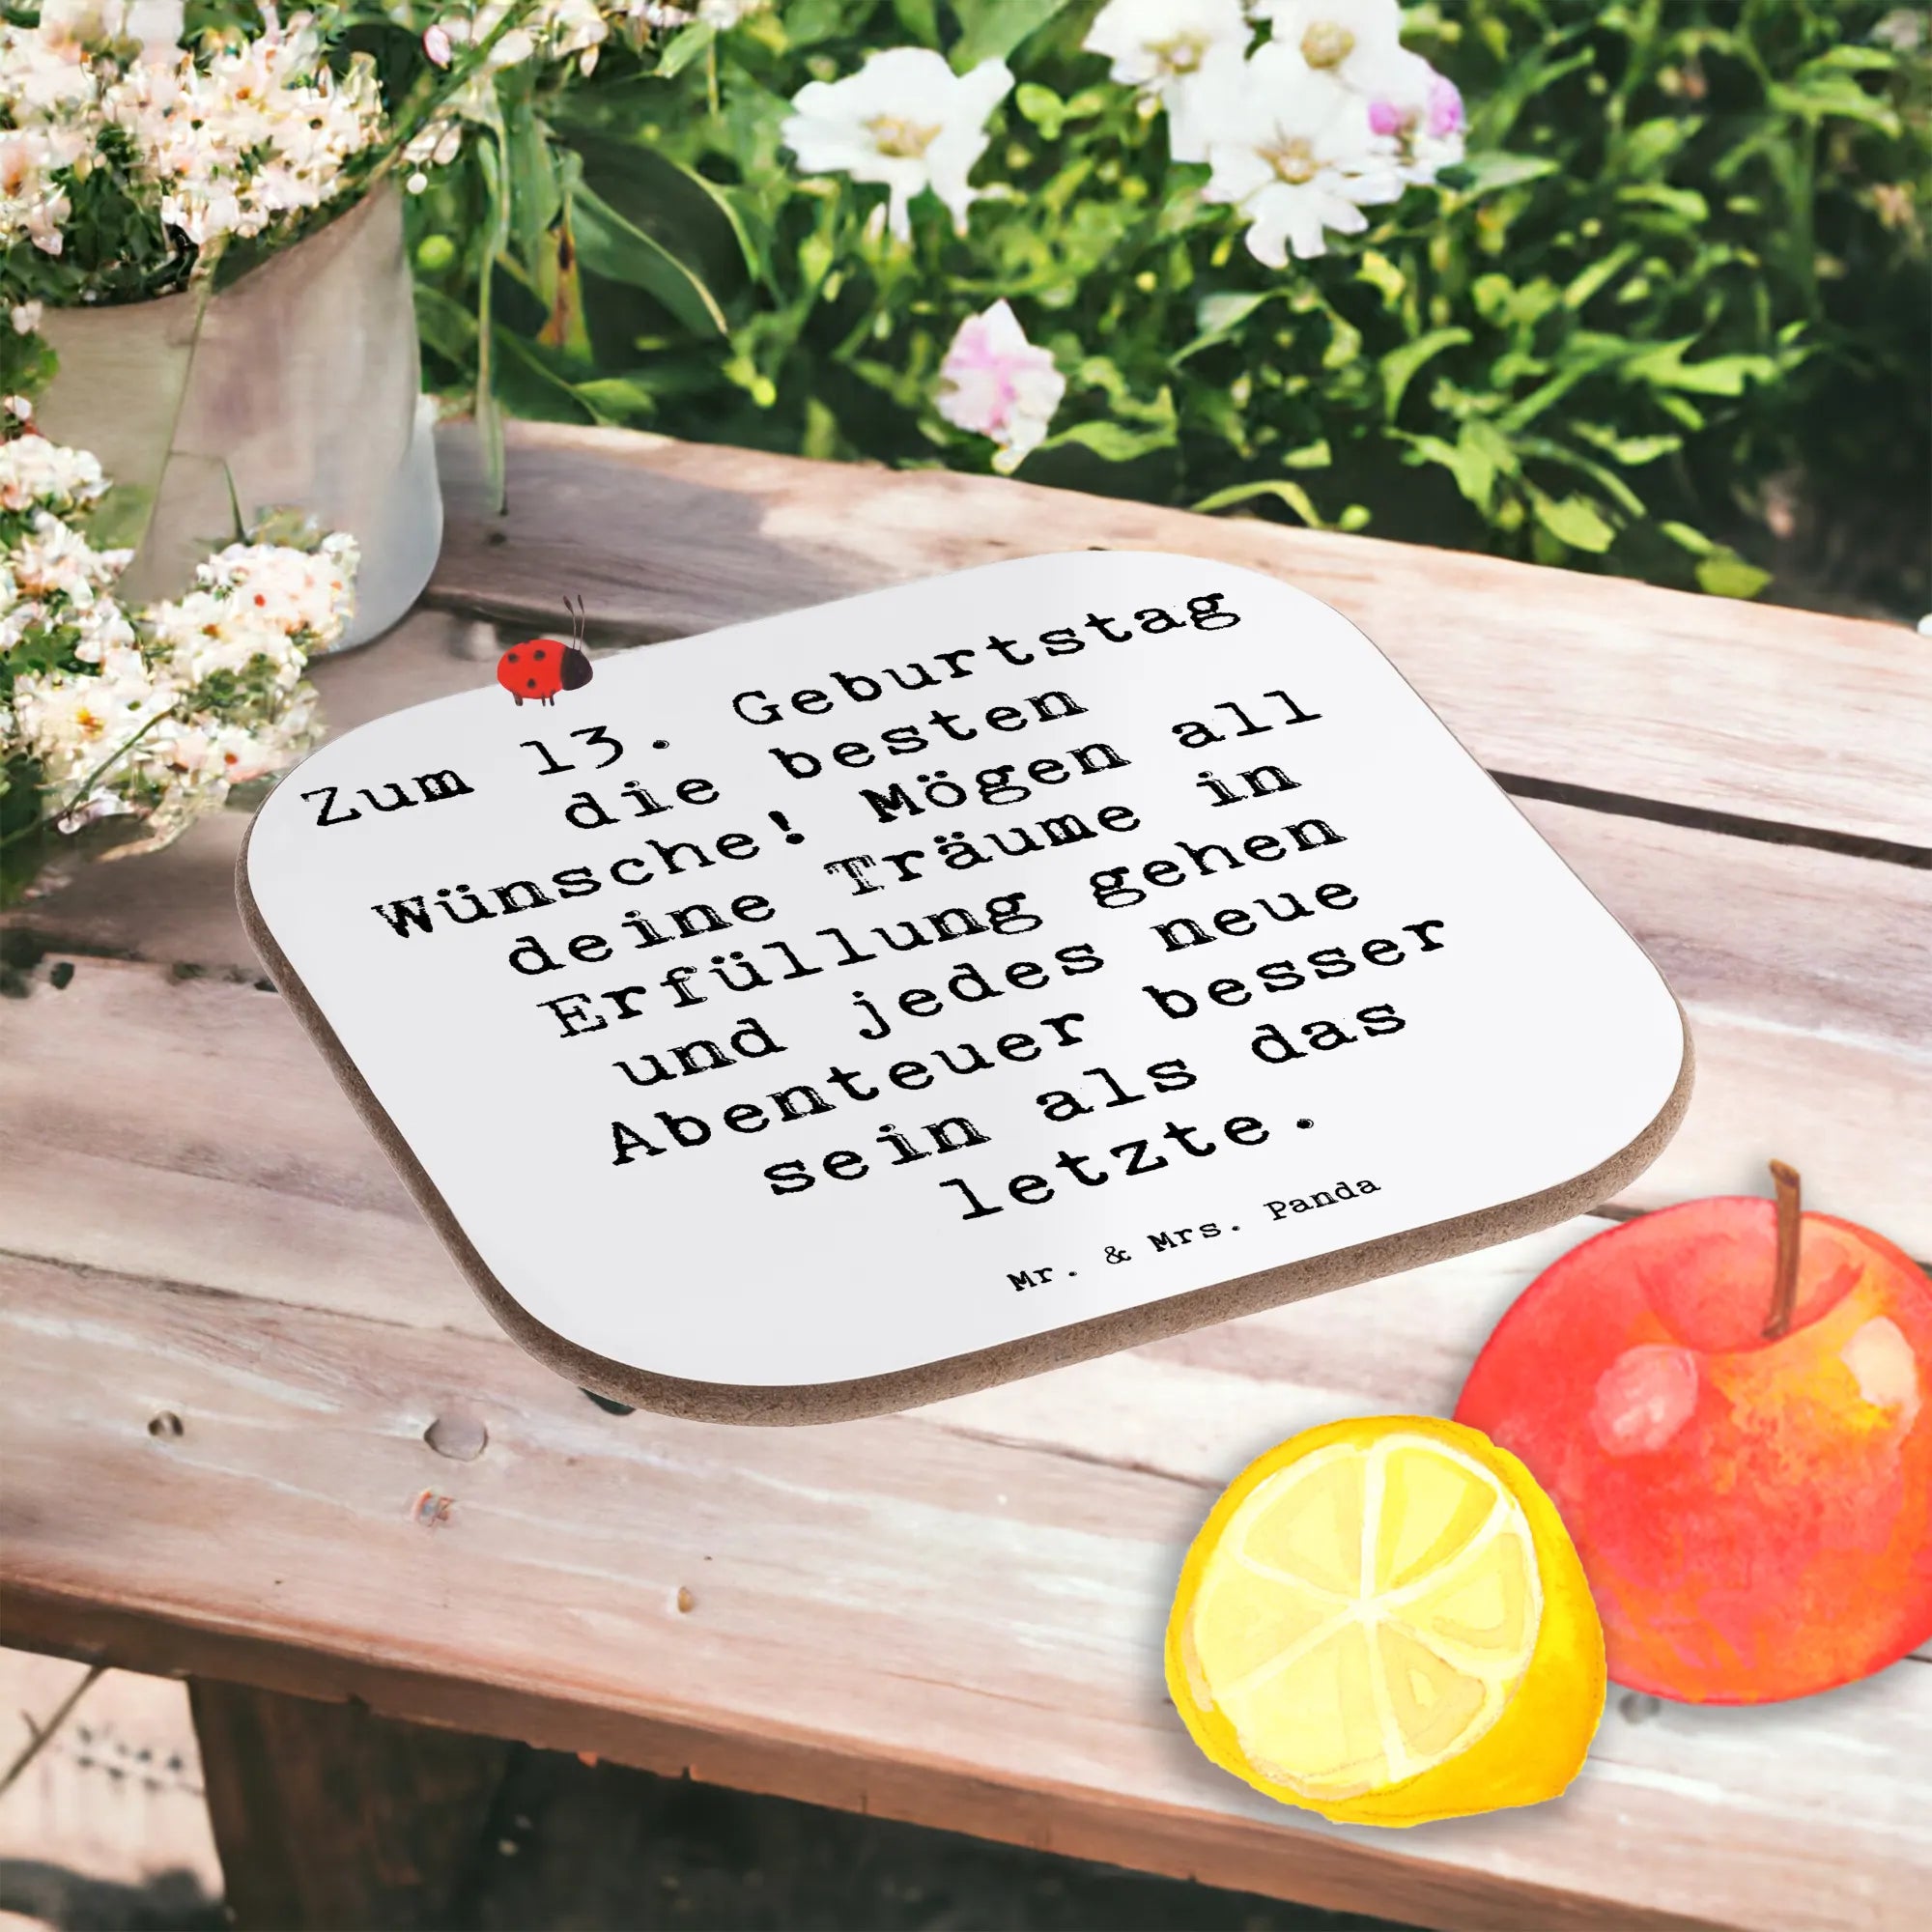 Zum 13. Geburtstag
die besten
Wünsche! Mögen all
deine Träume in
Erfüllung gehen
und jedes neue
Abenteuer besser
sein als das
letzte.
Mr. & Mrs. Panda